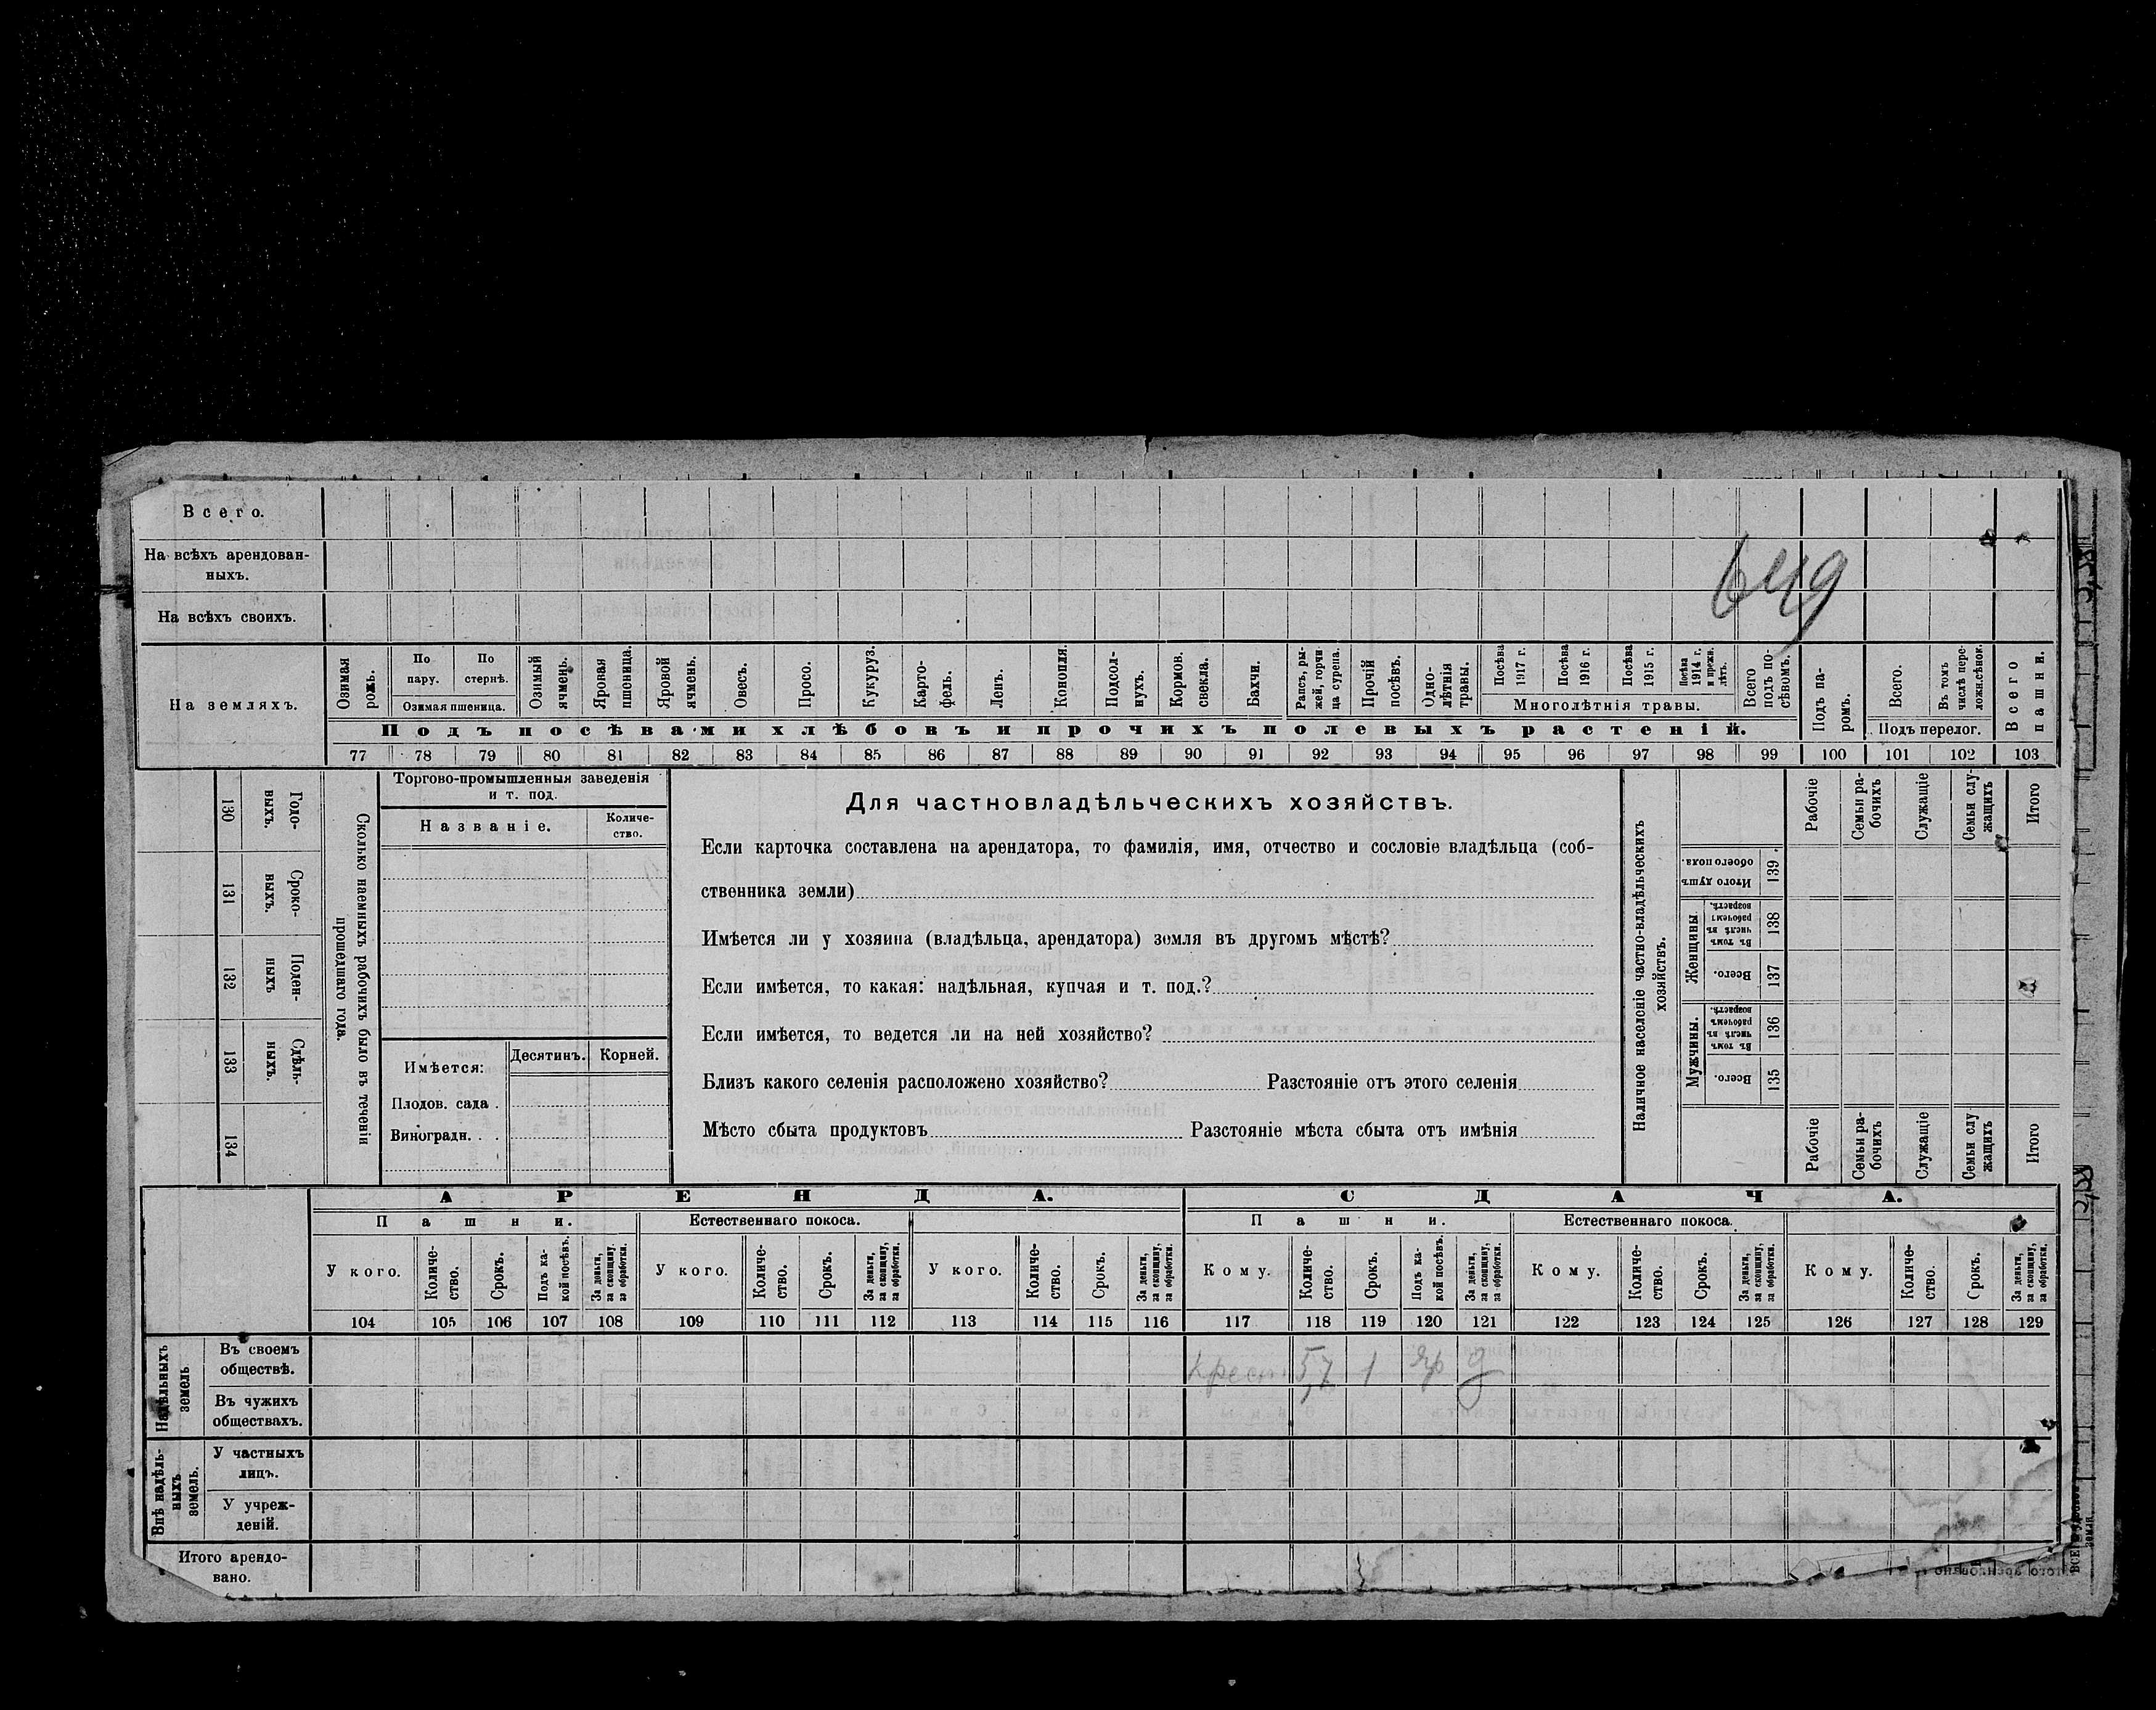 Всего.
На всѣхъ арендован-
ныхъ.
649
На всѣхъ своихъ.
На земляхъ.
Озимая рожь.
По пару.
По стернѣ.
Озимая пшеница.
Озимый ячмень.
Яровая пшеница.
Яровой ячмень.
Овесъ.
Просо.
Кукуруз.
Карто-
фель.
Ленъ.
Конопля.
Подсол-
нухъ.
Кормов. свекла.
Бахчи.
Рапсъ, ры-
жей, горчи-
ца сурепа.
Прочій посѣвъ.
Одно-
лѣтнія травы.
Посѣва 1917 г.
Посѣва 1916 г.
Посѣва 1915 г.
Посѣва 1914 г. и прежн. лѣтъ.
Многолѣтнія травы.
Всего подъ по-
сѣвомъ.
Подъ па-
ромъ.
Всего.
Въ томъ числѣ пере-
ложн.сѣнок.
Подъ перелог.
Всего пашни.
Подъ посѣвами хлѣбовъ и прочихъ полевыхъ растеній.
77 78 79 80 81 82 83 84 85 86 87 88 89 90 91 92 93 94 95 96 97 98 99 100 101 102 103
130 Годо-
выхъ.
131 Сроко-
выхъ.
132 Поден-
ныхъ
133 Сдѣль-
ныхъ.
134
Сколько наемныхъ рабочихъ было въ теченіи
прошедшаго года.
Торгово-промышленныя заведенія
и т. под.
Названіе.
Количе-
ство.
Имѣется:
Десятинъ.
Корней.
Плодов. сада .
Виноградн. . .
Для частновладѣльческихъ хозяйствъ.
Если карточка составлена на арендатора, то фамилія, имя, отчество и сословіе владѣльца (соб-
ственника земли)
Имѣется ли у хозяина (владѣльца, арендатора) земля въ другомъ мѣстѣ?
Если имѣется, то какая: надѣльная, купчая и т. под.?
Если имѣется, то ведется ли на ней хозяйство?
Близъ какого селенія расположено хозяйство? Разстояніе отъ этого селенія
Мѣсто сбыта продуктовъ Разстояніе мѣста сбыта отъ имѣнія
Наличное населеніе частно-владѣльческихъ
хозяйствъ.
Рабочіе
Семьи ра-
бочихъ
Служащіе
Семьи слу-
жащихъ
Итого
Итого душъ обоего пола.
139
Женщины
Въ томъ числѣ въ рабочемъ возрастѣ.
138
Всего.
137
Мужчины.
Въ томъ числѣ въ рабочемъ возрастѣ.
136
Всего.
135
Рабочіе
Семьи ра-
бочихъ
Служащіе
Семьи слу
жащихъ
Итого
АРЕНДА.
СДАЧА.
Пашни.
Естественнаго покоса.
Пашни.
Естественнаго покоса.
У кого.
Количе-
ство.
Срокъ.
Подъ ка-
кой посѣвъ.
За деньги, за скопщину, за обработки.
У кого.
Количе-
ство.
Срокъ.
За деньги, за скопщину, за обработки.
У кого.
Количе-
ство.
Срокъ.
За деньги, за скопщину, за обработки.
Кому.
Количе-
ство.
Срокъ.
Подъ ка-
кой посѣвъ.
За деньги, за скопщину, за обработки.
Кому.
Количе-
ство.
Срокъ.
За деньги, за скопщину, за обработки.
Кому.
Количе-
ство.
Срокъ.
За деньги, за скопщину, за обработки.
104 105 106 107 108 109 110 111 112 113 114 115 116 117 118 119 120 121 122 123 124 125 126 127 128 129
Надѣльныхъ
земель
Въ своемъ
обществѣ.
Крест 5,7 1 Яр д
Въ чужихъ
обществахъ.
Внѣ надѣль-
ныхъ
земель.
У частныхъ
лицъ.
У учреж-
деній.
Итого арендо-
вано.